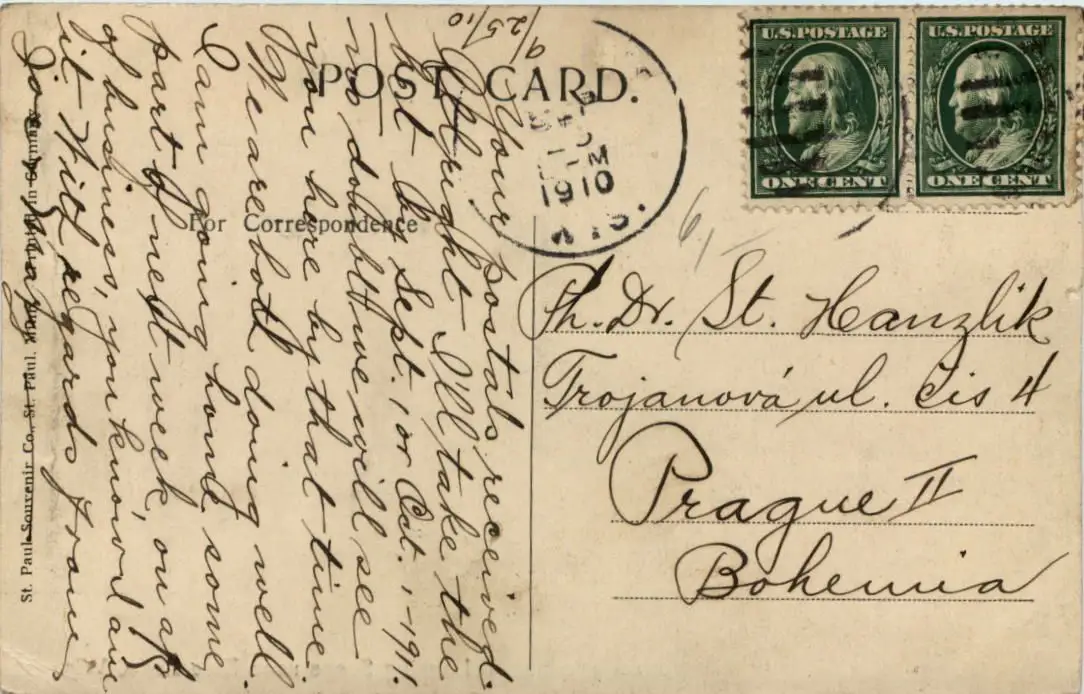 POST CARD.
For Correspondence
U.S. POSTAGE
ONE CENT
U.S. POSTAGE
ONE CENT
1910
WIS.
61
9/25/10
Your postals received.
Allright I'll take the
best by Sept. 1 or Oct. 1-1911.
no doubbt we will see
you here by that time.
We are both doing well.
I am going home some
part of next week, on ap
of business, you know I am
it. With regards from
Jos.
Ph. Dr. St. Hanzlik
Trojanová ul. čis 4
Prague II
Bohemia
St. Paul Souvenir Co., St. Paul, Minn. in Germany